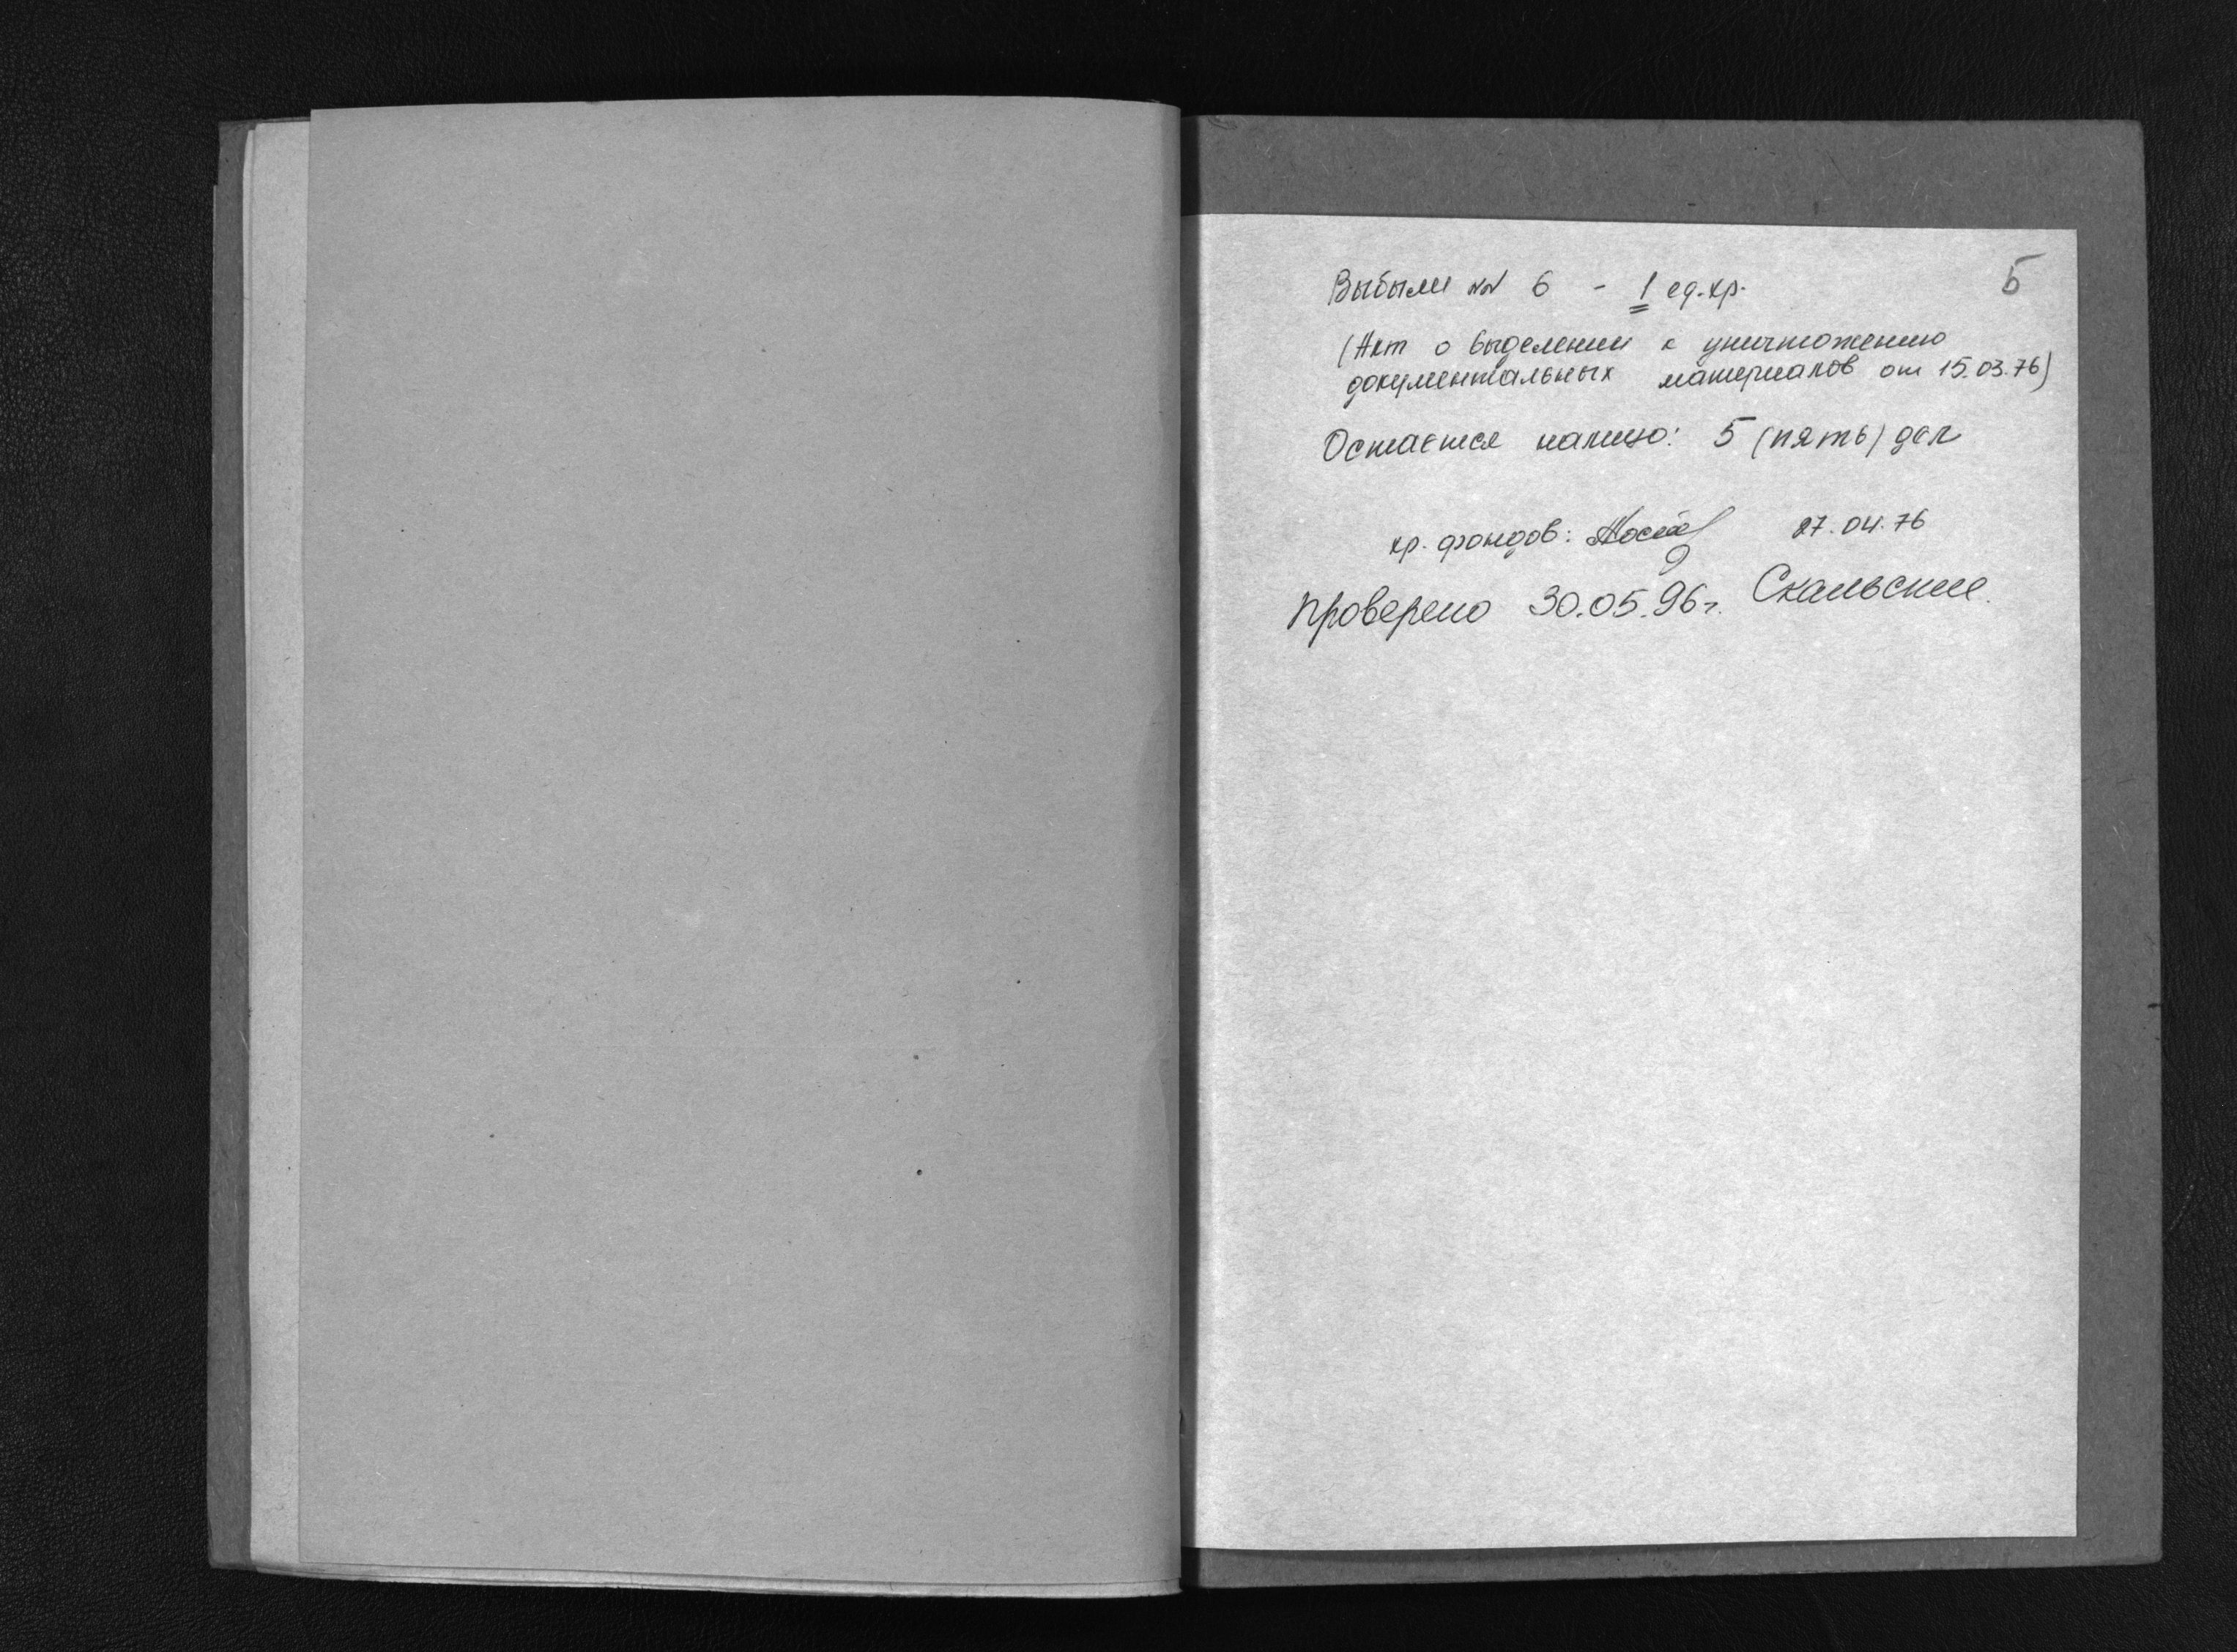 5
Выбыли №№ 6 - 1 ед.хр.
(Акт о выделении к уничтожению
документальных материалов от 15.03.76)
Остается налицо: 5 (пять) дел
хр. фондов: 27.04.76
Проверено 30.05.96г.